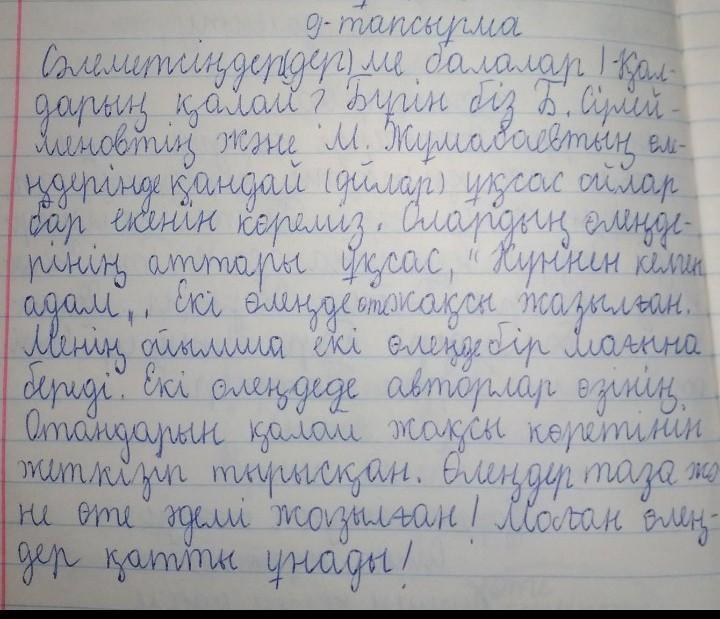 9-тапсырма
Сәлеметсіңдер(дер) ме балалар! Қал-
дарың қалай? Бүгін біз Б. Сүлей-
меновтің және М. Жұмабаевтың өле-
ңдерінде қандай (ойлар) ұқсас ойлар
бар екенін көреміз. Олардың өлеңде-
рінің аттары ұқсас, "Күннен келген
адам„. Екі өлеңде өте жақсы жазылған.
Менің ойымша екі өлеңде бір мағына
береді. Екі өлеңдеде авторлар өзінің
Отандарын қалай жақсы көретінін
жеткізіп тырысқан. Өлеңдер таза жә
не өте әдемі жазылған! Маған өлең-
дер қатты ұнады!